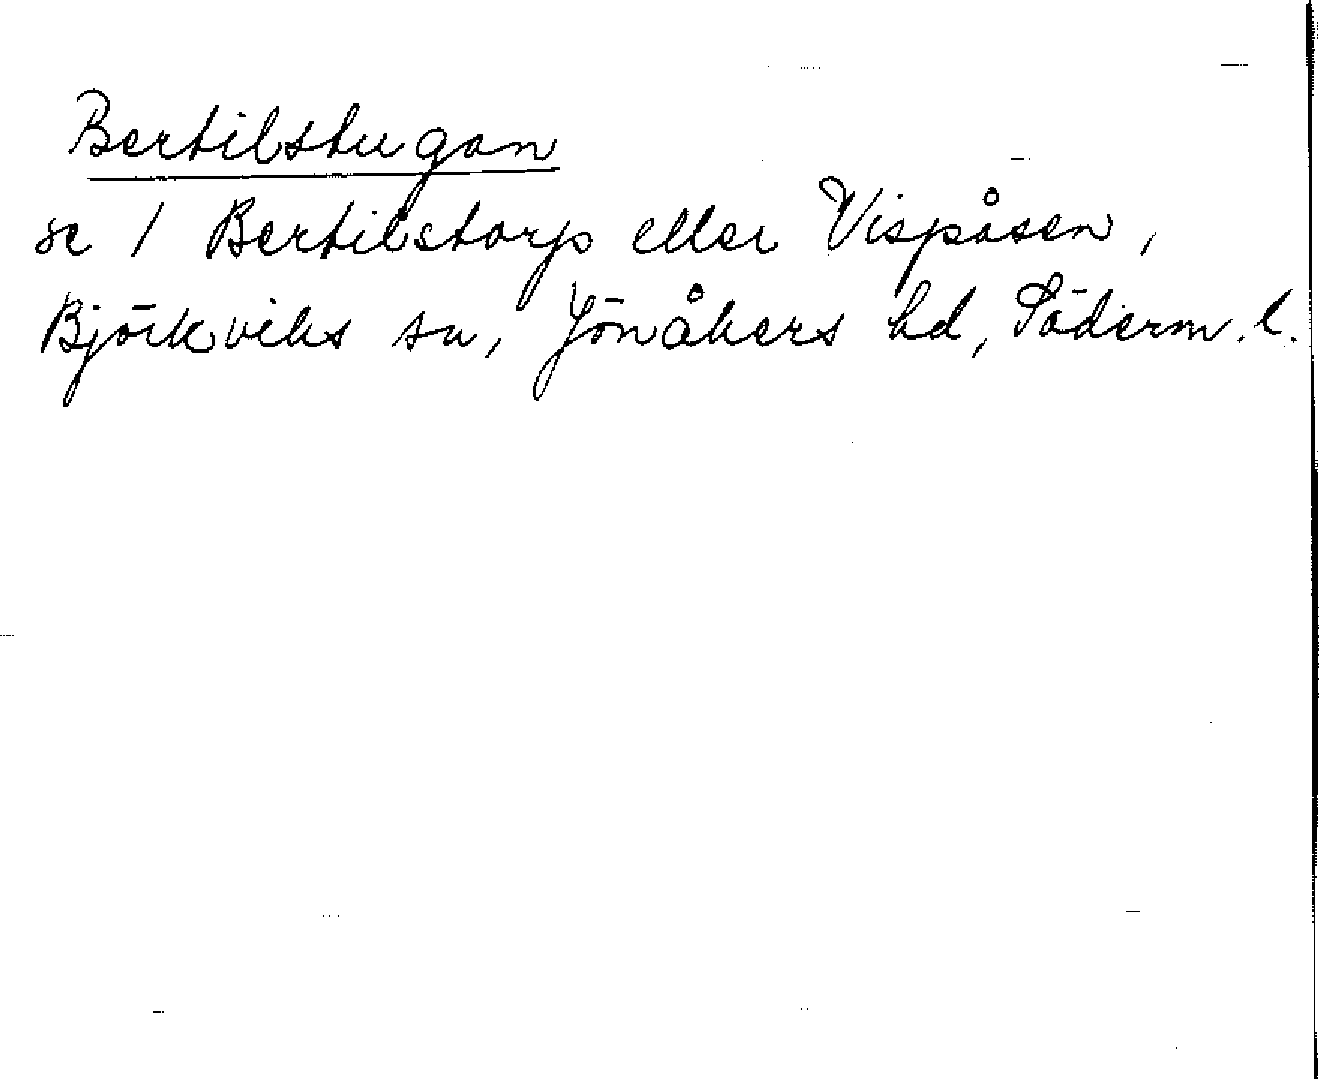 Bertilstugan
se 1 Bertilstorp eller Vispåsen,
Björkviks sn, Jönåkers hd, Söderm. l.